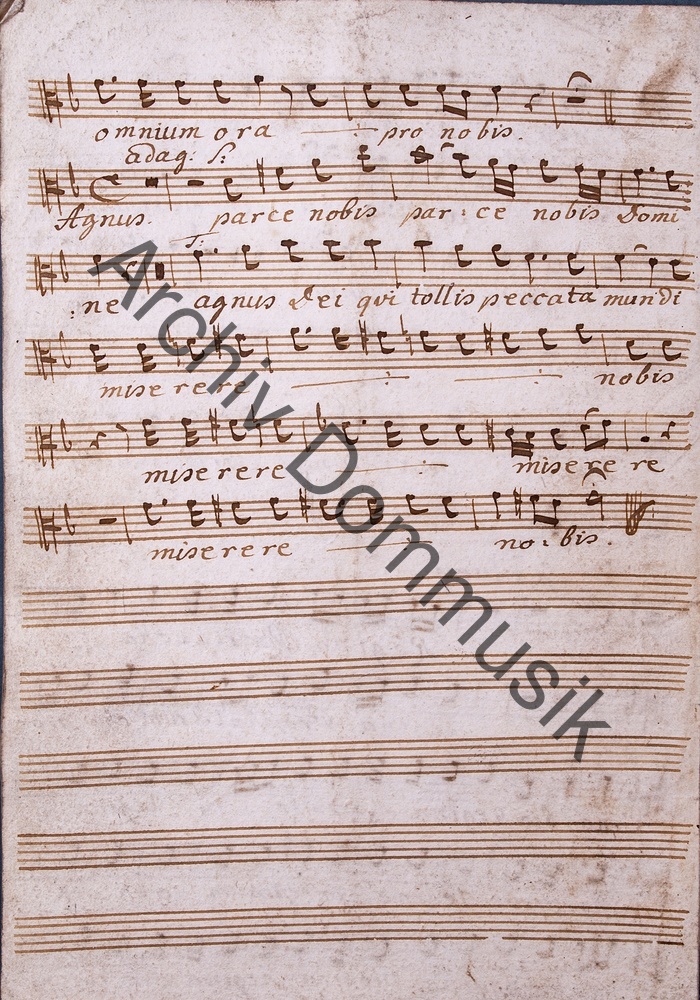 omnium ora pro nobis.
adag: S:
Agnus. parce nobis par: ce nobis Domi
T:
:ne agnus Dei qui tollis peccata mundi
miserere nobis
miserere miserere
miserere no: bis.
Archiv Dommusik